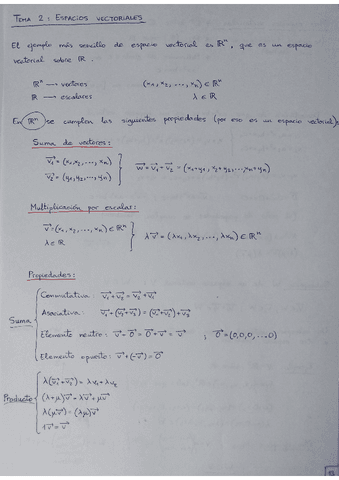 TEMA 2: ESPACIOS VECTORIALES
El ejemplo más sencillo de espacio vectorial es ℝⁿ, que es un espacio
vectorial sobre ℝ.
ℝⁿ → vectores (x₁, x₂, ..., xₙ) ∈ ℝⁿ
ℝ → escalares λ ∈ ℝ
En ℝⁿ se cumplen las siguientes propiedades (por eso es un espacio vectorial)
Suma de vectores:
v₁⃗ = (x₁, x₂, ..., xₙ)
v₂⃗ = (y₁, y₂, ..., yₙ) } w⃗ = v₁⃗ + v₂⃗ = (x₁+y₁, x₂+y₂, ..., xₙ+yₙ)
Multiplicación por escalar:
v⃗ = (x₁, x₂, ..., xₙ) ∈ ℝⁿ
λ ∈ ℝ } λv⃗ = (λx₁, λx₂, ..., λxₙ) ∈ ℝⁿ
Propiedades:
Suma { Conmutativa: v₁⃗ + v₂⃗ = v₂⃗ + v₁⃗
Asociativa: v₁⃗ + (v₂⃗ + v₃⃗) = (v₁⃗ + v₂⃗) + v₃⃗
Elemento neutro: v⃗ + 0⃗ = 0⃗ + v⃗ = v⃗ ; 0⃗ = (0,0,0, ...0)
Elemento opuesto: v⃗ + (-v⃗) = 0⃗
Producto { λ(v₁⃗ + v₂⃗) = λv₁ + λv₂
(λ+μ)v⃗ = λv⃗ + μv⃗
λ(μv⃗) = (λμ)v⃗
1v⃗ = v⃗